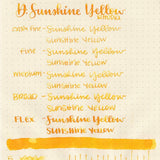 D. Sunshine Yellow
Sunshine Yellow
Sunshine Yellow
Fine - Sunshine Yellow
Sunshine Yellow
Medium - Sunshine Yellow
Sunshine Yellow
Broad - Sunshine Yellow
Sunshine Yellow
Flex - Sunshine Yellow
Sunshine Yellow